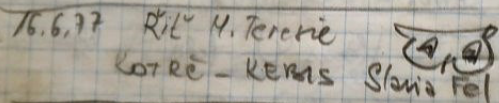 16.6.77 Řiť M. Terezie
KOTRČ - KEBAS Slavia Fel